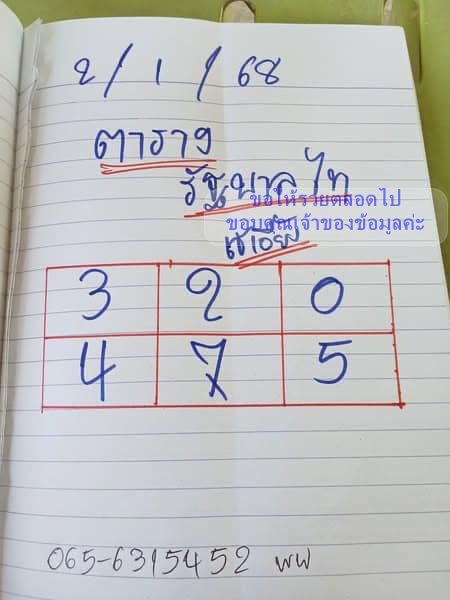 2/1/68
ตาราง
รัฐบาลไท
ขอให้รวยตลอดไป
ขอบคุณเจ้าของข้อมูลค่ะ
3 2 0
4 7 5
065-6315452